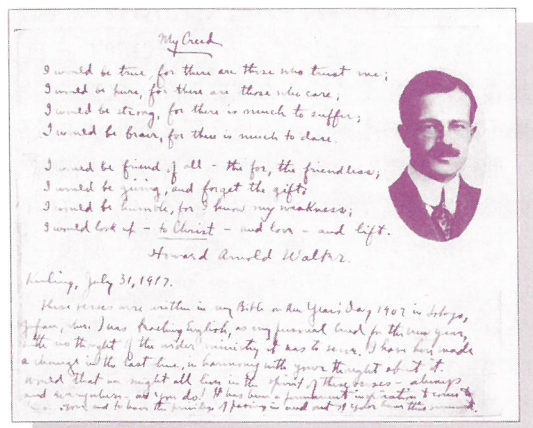 My Creed
I would be true, for there are those who trust me;
I would be pure, for there are those who care;
I would be strong, for there is much to suffer;
I would be brave, for there is much to dare.
I would be friend of all – the foe, the friendless;
I would be giving, and forget the gift;
I would be humble, for I know my weakness;
I would look up – to Christ – and love – and lift.
Howard Arnold Walter.
Kuling, July 31, 1917.
These verses were written in my Bible on New Year's Day 1907 in Tokyo,
Japan, where I was teaching English, as my personal creed for the new year,
with no thought of the wider ministry it was to serve. I have here made
a change in the last line, in harmony with your thought about it.
Would that we might all live in the spirit of these verses – always
and everywhere – as you do! It has been a permanent inspiration to
and to have the privilege of passing in and out of your home this summer.